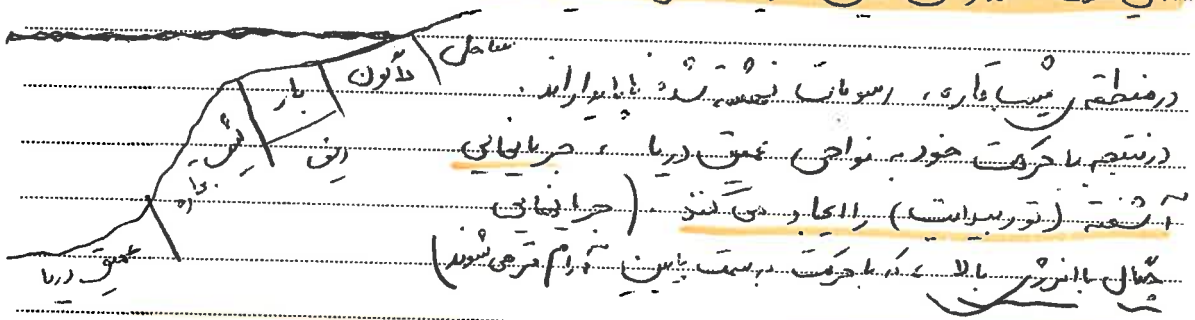 ساحل
لاگون
بار
ریف
شیب قاره
عمیق دریا
در منطقه شیب قاره، رسوبات نهشته شده ناپایدارند.
در نتیجه با حرکت خود به نواحی عمیق دریا، جریانهایی
آشفته (توربیدایت) را ایجاد می کنند. (جریانهایی
چگال با انرژی بالا، که با حرکت به سمت پایین آرام تر می شوند)